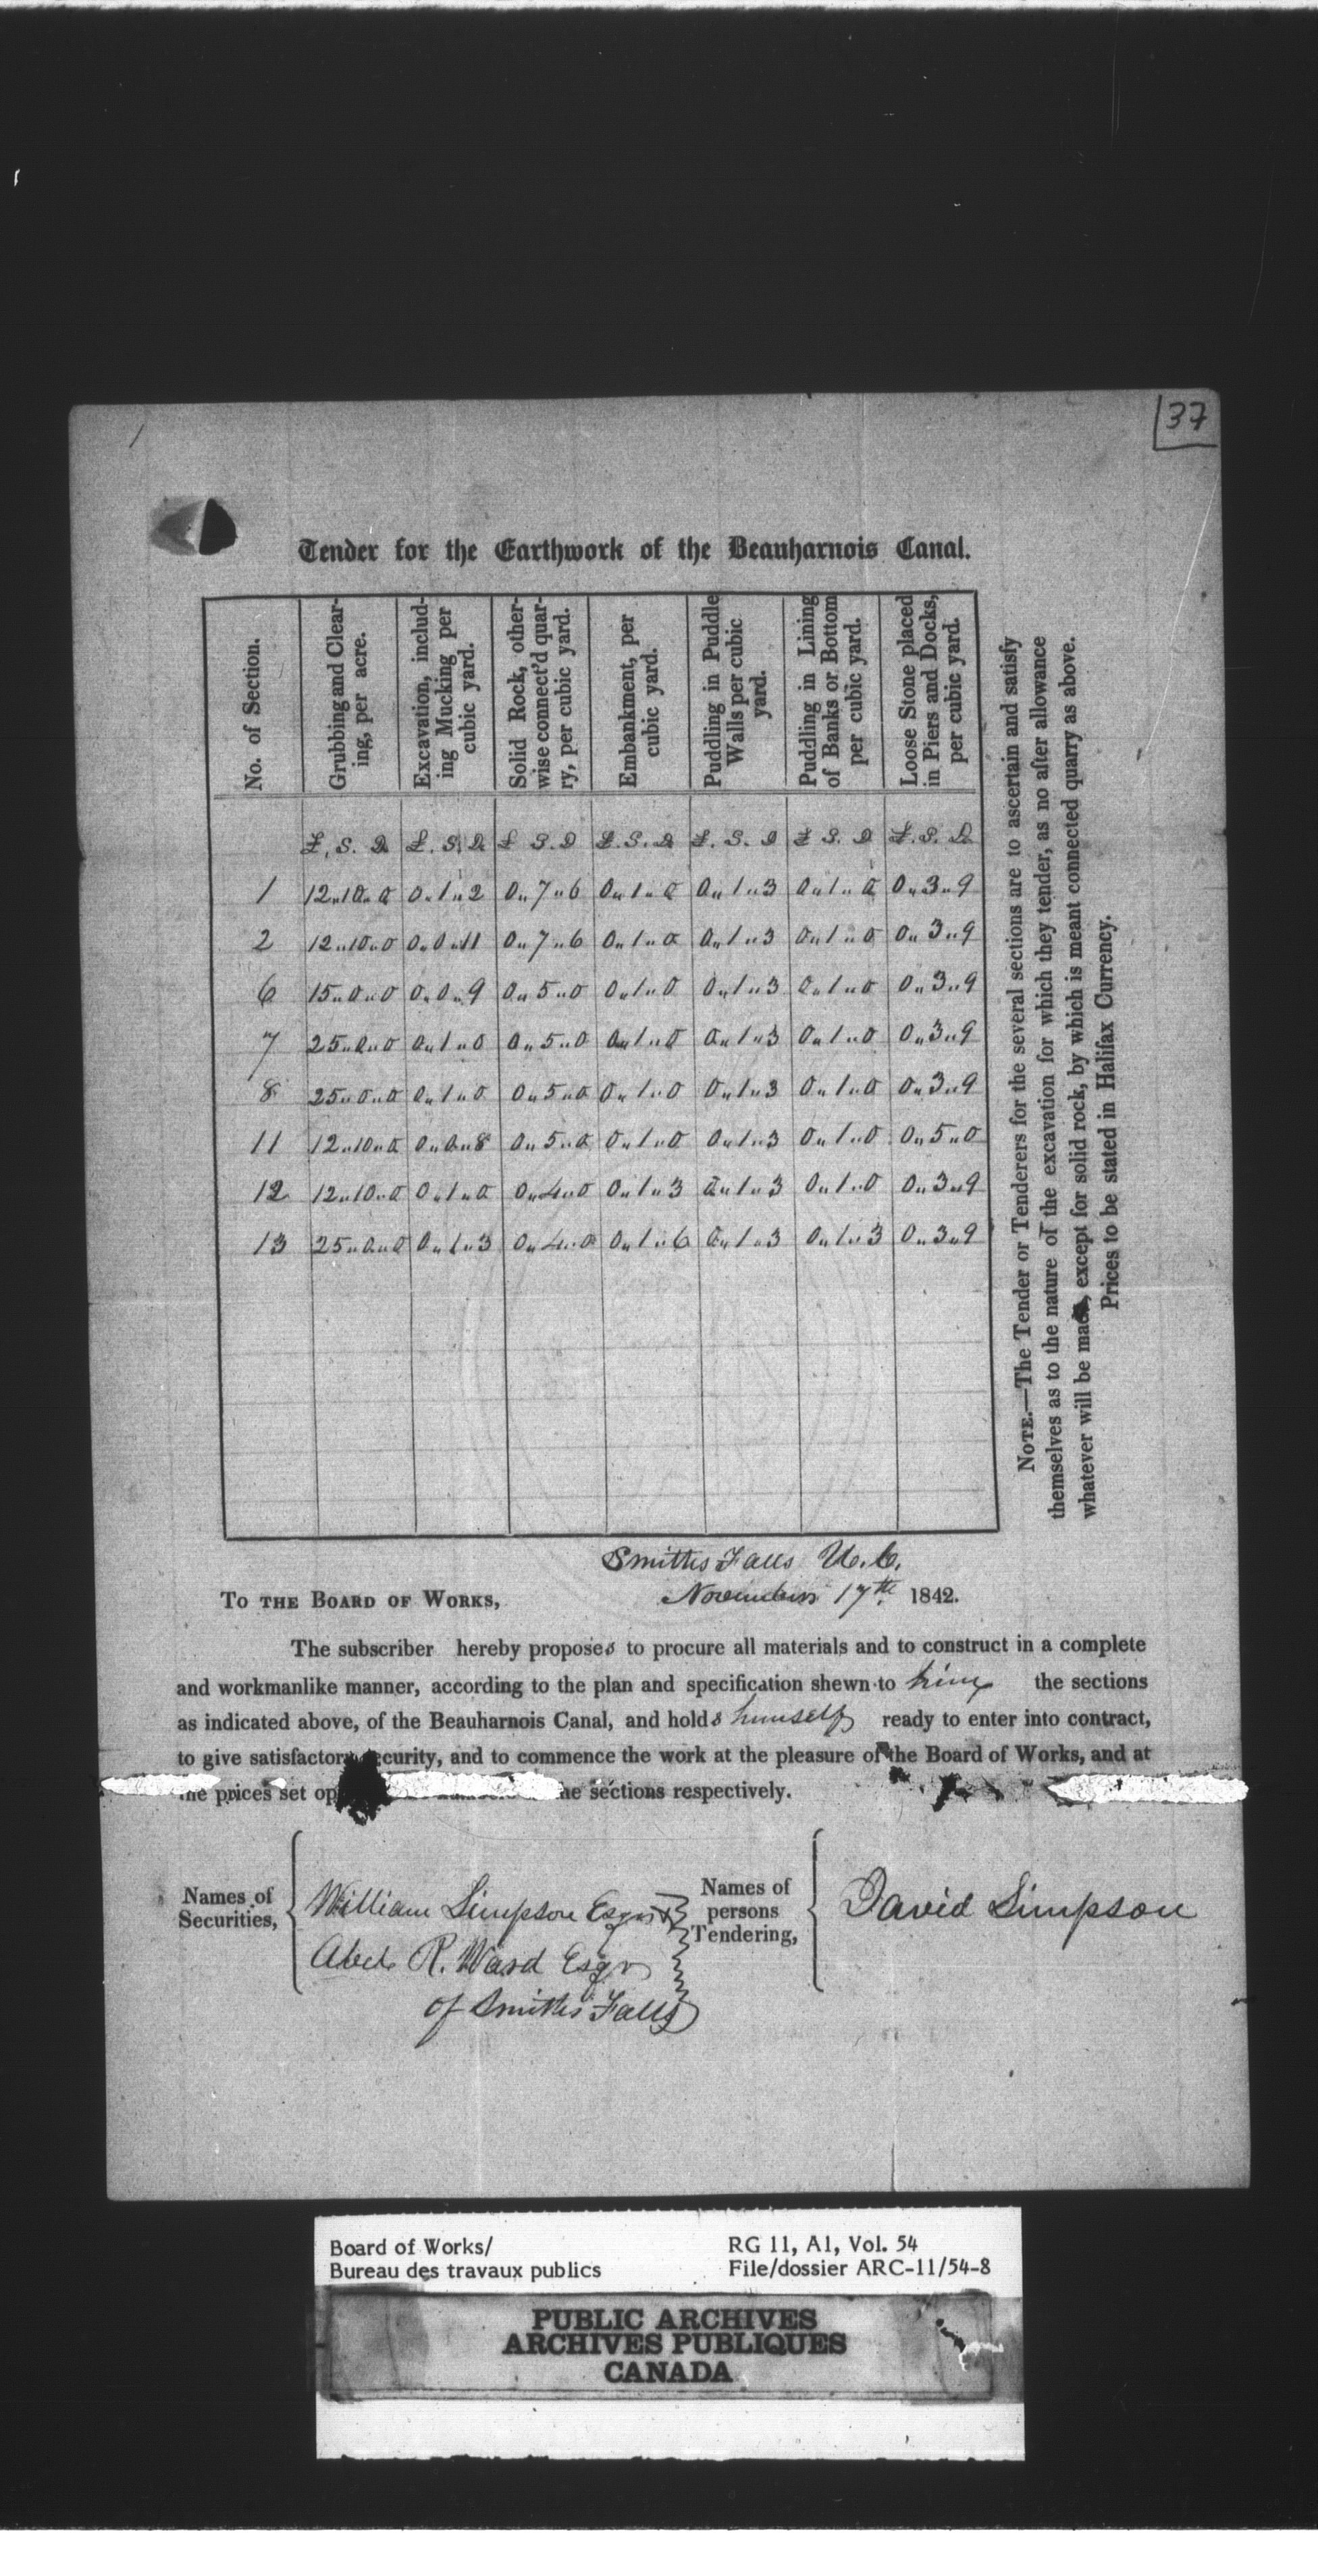 37
Tender for the Earthwork of the Beauharnois Canal.
No. of Section.
Grubbing and Clear-
ing, per acre.
Excavation, includ-
ing Mucking per
cubic yard.
Solid Rock, other-
wise connect'd quar-
ry, per cubic yard.
Embankment, per
cubic yard.
Puddling in Puddle
Walls per cubic
yard.
Puddling in Lining
of Banks or Bottom
per cubic yard.
Loose Stone placed
in Piers and Docks,
per cubic yard.
£. S. D £. S. D £ S. D £. S. D £. S. D £ S. D £. S. D
1 12"10"0 0"1"2 0"7"6 0"1"0 0"1"3 0"1"0 0"3"9
2 12"10"0 0"0"11 0"7"6 0"1"0 0"1"3 0"1"0 0"3"9
6 15"0"0 0"0"9 0"5"0 0"1"0 0"1"3 0"1"0 0"3"9
7 25"0"0 0"1"0 0"5"0 0"1"0 0"1"3 0"1"0 0"3"9
8 25"0"0 0"1"0 0"5"0 0"1"0 0"1"3 0"1"0 0"3"9
11 12"10"0 0"0"8 0"5"0 0"1"0 0"1"3 0"1"0 0"5"0
12 12"10"0 0"1"0 0"4"0 0"1"3 0"1"3 0"1"0 0"3"9
13 25"0"0 0"1"3 0"4"0 0"1"6 0"1"3 0"1"3 0"3"9
NOTE.—The Tender or Tenderers for the several sections are to ascertain and satisfy
themselves as to the nature of the excavation for which they tender, as no after allowance
whatever will be made, except for solid rock, by which is meant connected quarry as above.
Prices to be stated in Halifax Currency.
Smiths Falls U.C.
TO THE BOARD OF WORKS, November 17th 1842.
The subscriber hereby proposes to procure all materials and to construct in a complete
and workmanlike manner, according to the plan and specification shewn to him the sections
as indicated above, of the Beauharnois Canal, and holds himself ready to enter into contract,
to give satisfactory security, and to commence the work at the pleasure of the Board of Works, and at
the prices set op he sections respectively.
Names of
Securities,
William Simpson Esqr
Abel R. Ward Esqr
of Smiths Falls
Names of
persons
Tendering,
David Simpson
Board of Works/
Bureau des travaux publics
RG 11, A1, Vol. 54
File/dossier ARC-11/54-8
PUBLIC ARCHIVES
ARCHIVES PUBLIQUES
CANADA